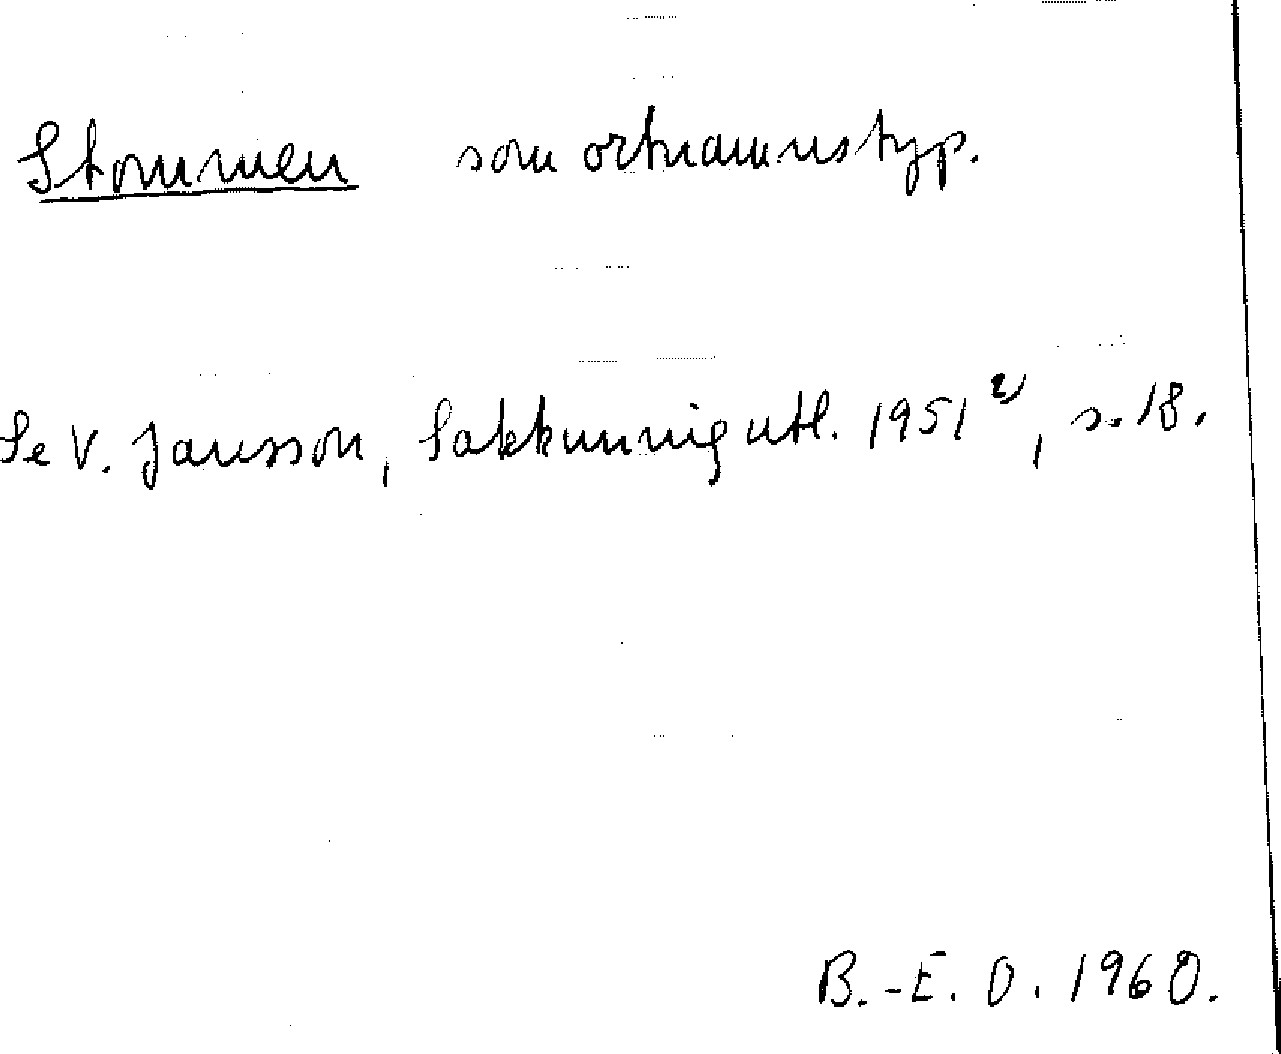 Stommen som ortnamnstyp.
Se V. Jansson, Sakkunnigutl. 1951²⁾, s. 18.
B.-E. O. 1960.